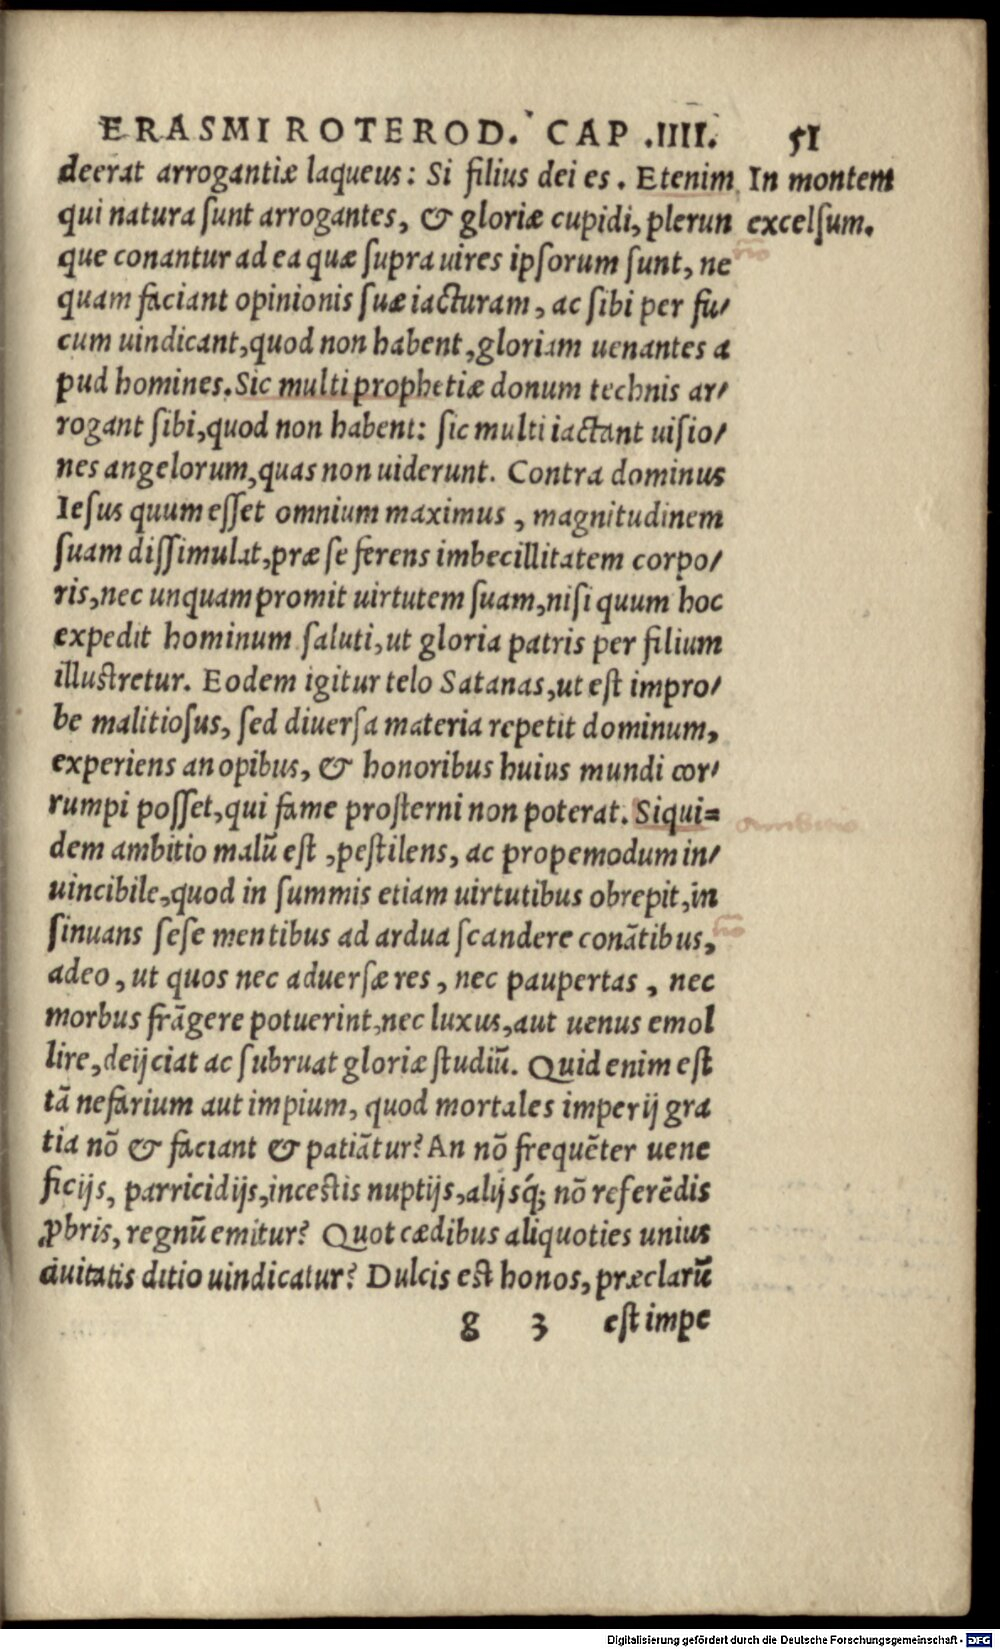 ERASMI ROTEROD. CAP .IIII. 51
deerat arrogantiæ laqueus: Si filius dei es. Etenim
qui natura ſunt arrogantes, & gloriæ cupidi, plerun
que conantur ad ea quæ ſupra uires ipſorum ſunt, ne
quam faciant opinionis ſuæ iacturam, ac ſibi per fu/
cum uindicant, quod non habent, gloriam uenantes a
pud homines. Sic multi prophetiæ donum technis ar/
rogant ſibi, quod non habent: ſic multi iactant uiſio/
nes angelorum, quas non uiderunt. Contra dominus
Ieſus quum eſſet omnium maximus, magnitudinem
ſuam diſſimulat, præ ſe ferens imbecillitatem corpo/
ris, nec unquam promit uirtutem ſuam, niſi quum hoc
expedit hominum ſaluti, ut gloria patris per filium
illuſtretur. Eodem igitur telo Satanas, ut eſt impro/
be malitioſus, ſed diuerſa materia repetit dominum,
experiens an opibus, & honoribus huius mundi cor/
rumpi poſſet, qui fame proſterni non poterat. Siqui=
dem ambitio malū eſt, peſtilens, ac propemodum in/
uincibile, quod in ſummis etiam uirtutibus obrepit, in
ſinuans ſeſe mentibus ad ardua ſcandere conātibus,
adeo, ut quos nec aduerſæ res, nec paupertas, nec
morbus frāgere potuerint, nec luxus, aut uenus emol
lire, deijciat ac ſubruat gloriæ ſtudiū. Quid enim eſt
tā nefarium aut impium, quod mortales imperij gra
tia nō & faciant & patiātur? An nō frequēter uene
ficijs, parricidijs, inceſtis nuptijs, alijsq́; nō referēdis
ꝓbris, regnū emitur? Quot cædibus aliquoties unius
ciuitatis ditio uindicatur? Dulcis eſt honos, præclarū
g 3 eſt impe
In montem
excelſum.
ambitio
Digitalisierung gefördert durch die Deutsche Forschungsgemeinschaft - DFG